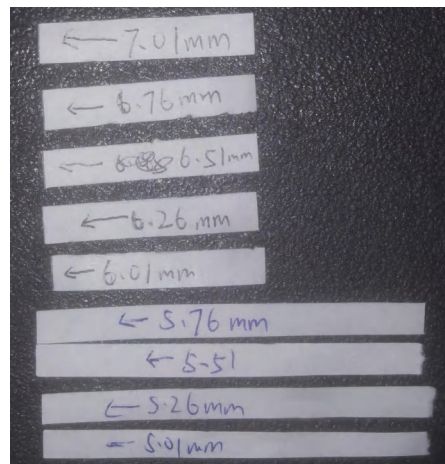 ← 7.01mm
← 6.76mm
← 6.51mm
← 6.26mm
← 6.01mm
← 5.76 mm
← 5.51
← 5.26mm
← 5.01mm